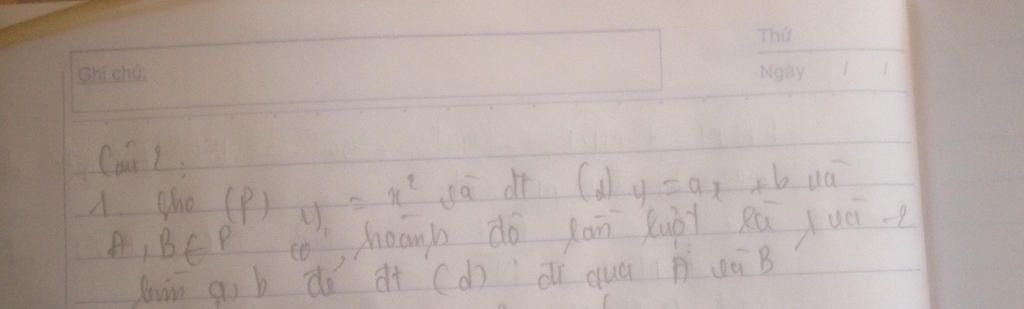 Thứ
Ghi chú:
Ngày / /
Câu 2:
1. Cho (P) y = x² và đt (d) y = ax + b và
A, B ∈ P có hoành độ lần lượt là 1 và -2
tìm a, b để đt (d) đi qua A và B